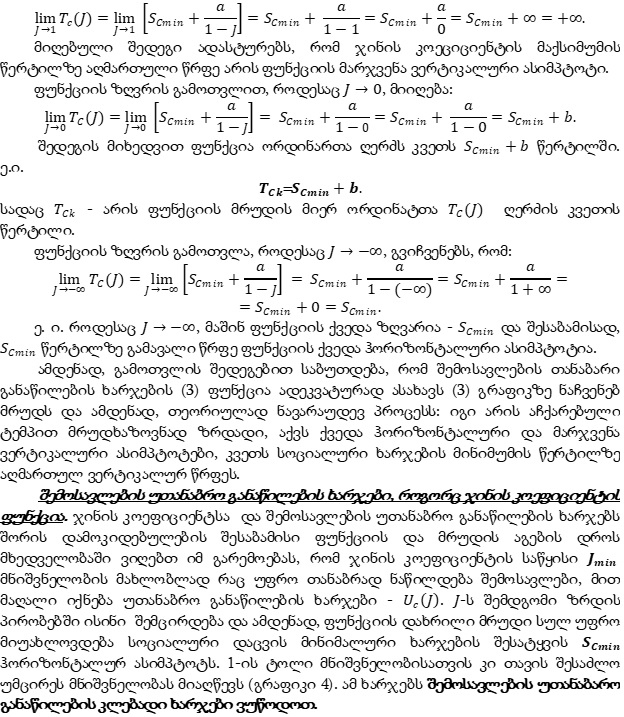 lim_{J→1} T_c(J) = lim_{J→1} [S_{Cmin} + a/(1 − J)] = S_{Cmin} + a/(1 − 1) = S_{Cmin} + a/0 = S_{Cmin} + ∞ = +∞.
მიღებული შედეგი ადასტურებს, რომ ჯინის კოეციციენტის მაქსიმუმის
წერტილზე აღმართული წრფე არის ფუნქციის მარჯვენა ვერტიკალური ასიმპტოტი.
ფუნქციის ზღვრის გამოთვლით, როდესაც J → 0, მიიღება:
lim_{J→0} T_C(J) = lim_{J→0} [S_{Cmin} + a/(1 − J)] = S_{Cmin} + a/(1 − 0) = S_{Cmin} + a/(1 − 0) = S_{Cmin} + b.
შედეგის მიხედვით ფუნქცია ორდინართა ღერძს კვეთს S_{Cmin} + b წერტილში.
ე.ი.
T_{Ck}=S_{Cmin} + b.
სადაც T_{Ck} - არის ფუნქციის მრუდის მიერ ორდინატთა T_C(J) ღერძის კვეთის
წერტილი.
ფუნქციის ზღვრის გამოთვლა, როდესაც J → −∞, გვიჩვენებს, რომ:
lim_{J→−∞} T_C(J) = lim_{J→−∞} [S_{Cmin} + a/(1 − J)] = S_{Cmin} + a/(1 − (−∞)) = S_{Cmin} + a/(1 + ∞) =
= S_{Cmin} + 0 = S_{Cmin}.
ე. ი. როდესაც J → −∞, მაშინ ფუნქციის ქვედა ზღვარია - S_{Cmin} და შესაბამისად,
S_{Cmin} წერტილზე გამავალი წრფე ფუნქციის ქვედა ჰორიზონტალური ასიმპტოტია.
ამდენად, გამოთვლის შედეგებით საბუთდება, რომ შემოსავლების თანაბარი
განაწილების ხარჯების (3) ფუნქცია ადეკვატურად ასახავს (3) გრაფიკზე ნაჩვენებ
მრუდს და ამდენად, თეორიულად ნავარაუდევ პროცესს: იგი არის აჩქარებული
ტემპით მრუდხაზოვნად ზრდადი, აქვს ქვედა ჰორიზონტალური და მარჯვენა
ვერტიკალური ასიმპტოტები, კვეთს სოციალური ხარჯების მინიმუმის წერტილზე
აღმართულ ვერტიკალურ წრფეს.
შემოსავლების უთანაბრო განაწილების ხარჯები, როგორც ჯინის კოეფიციენტის
ფუნქცია. ჯინის კოეფიციენტსა და შემოსავლების უთანაბრო განაწილების ხარჯებს
შორის დამოკიდებულების შესაბამისი ფუნქციის და მრუდის აგების დროს
მხედველობაში ვიღებთ იმ გარემოებას, რომ ჯინის კოეფიციენტის საწყისი J_{min}
მნიშვნელობის მახლობლად რაც უფრო თანაბრად ნაწილდება შემოსავლები, მით
მაღალი იქნება უთანაბრო განაწილების ხარჯები - U_c(J). J-ს შემდგომი ზრდის
პირობებში ისინი შემცირდება და ამდენად, ფუნქციის დახრილი მრუდი სულ უფრო
მიუახლოვდება სოციალური დაცვის მინიმალური ხარჯების შესატყვის S_{Cmin}
ჰორიზონტალურ ასიმპტოტს. 1-ის ტოლი მნიშვნელობისათვის კი თავის შესაძლო
უმცირეს მნიშვნელობას მიაღწევს (გრაფიკი 4). ამ ხარჯებს შემოსავლების უთანაბარო
განაწილების კლებადი ხარჯები ვუწოდოთ.